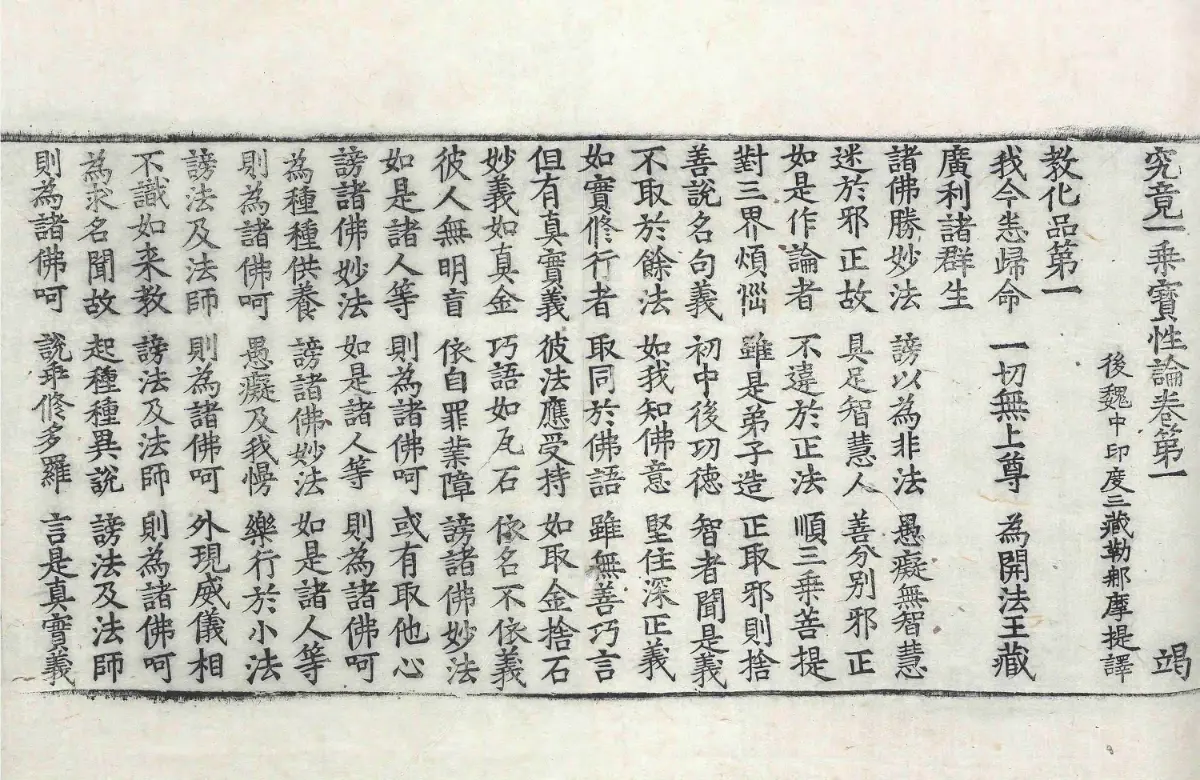 究竟一乘寶性論卷第一 竭
後魏中印度三藏勒那摩提譯
教化品第一
我今悉歸命 一切無上尊 為開法王藏
廣利諸群生
諸佛勝妙法 謗以為非法 愚癡無智慧
迷於邪正故 具足智慧人 善分別邪正
如是作論者 不違於正法 順三乘菩提
對三界煩惱 雖是弟子造 正取邪則捨
善說名句義 初中後功德 智者聞是義
不取於餘法 如我知佛意 堅住深正義
如實修行者 取同於佛語 雖無善巧言
但有真實義 彼法應受持 如取金捨石
妙義如真金 巧語如瓦石 依名不依義
彼人無明盲 依自罪業障 謗諸佛妙法
如是諸人等 則為諸佛呵 或有取他心
謗諸佛妙法 如是諸人等 則為諸佛呵
為種種供養 謗諸佛妙法 如是諸人等
則為諸佛呵 愚癡及我慢 樂行於小法
謗法及法師 則為諸佛呵 外現威儀相
不識如來教 謗法及法師 則為諸佛呵
為求名聞故 起種種異說 謗法及法師
則為諸佛呵 說乖修多羅 言是真實義